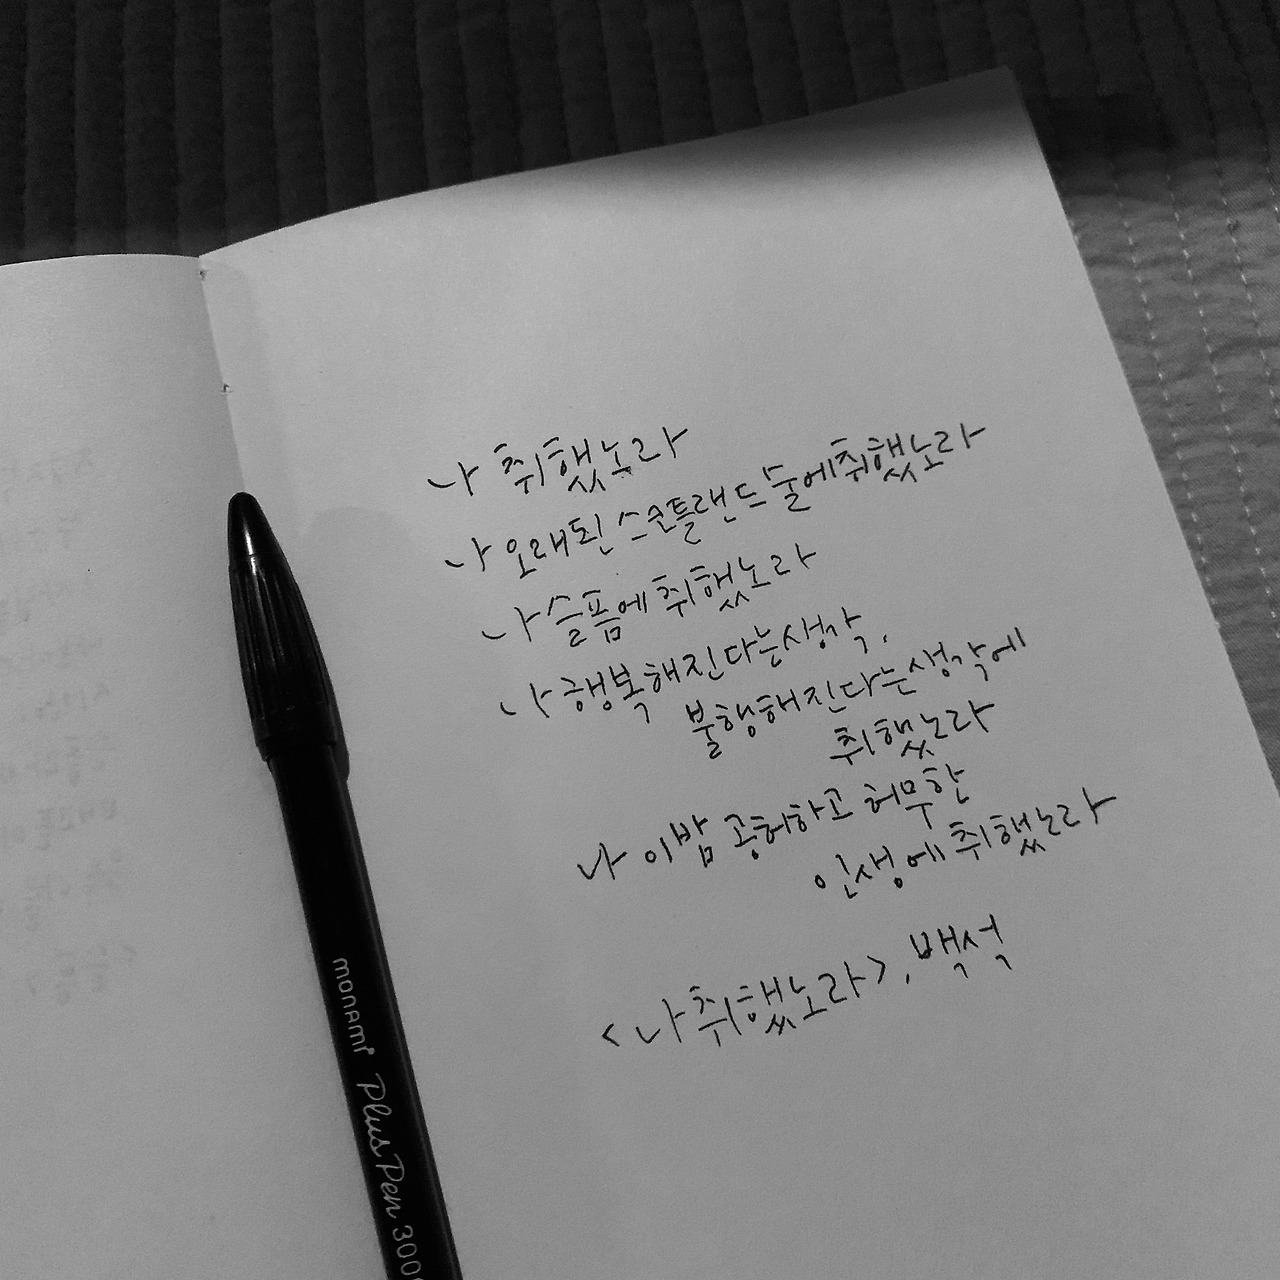 나 취했노라
나 오래된 스코틀랜드 술에 취했노라
나 슬픔에 취했노라
나 행복해진다는 생각,
불행해진다는 생각에
취했노라
나 이밤 공허하고 허무한
인생에 취했노라
<나 취했노라>, 백석
monami Plus Pen 300